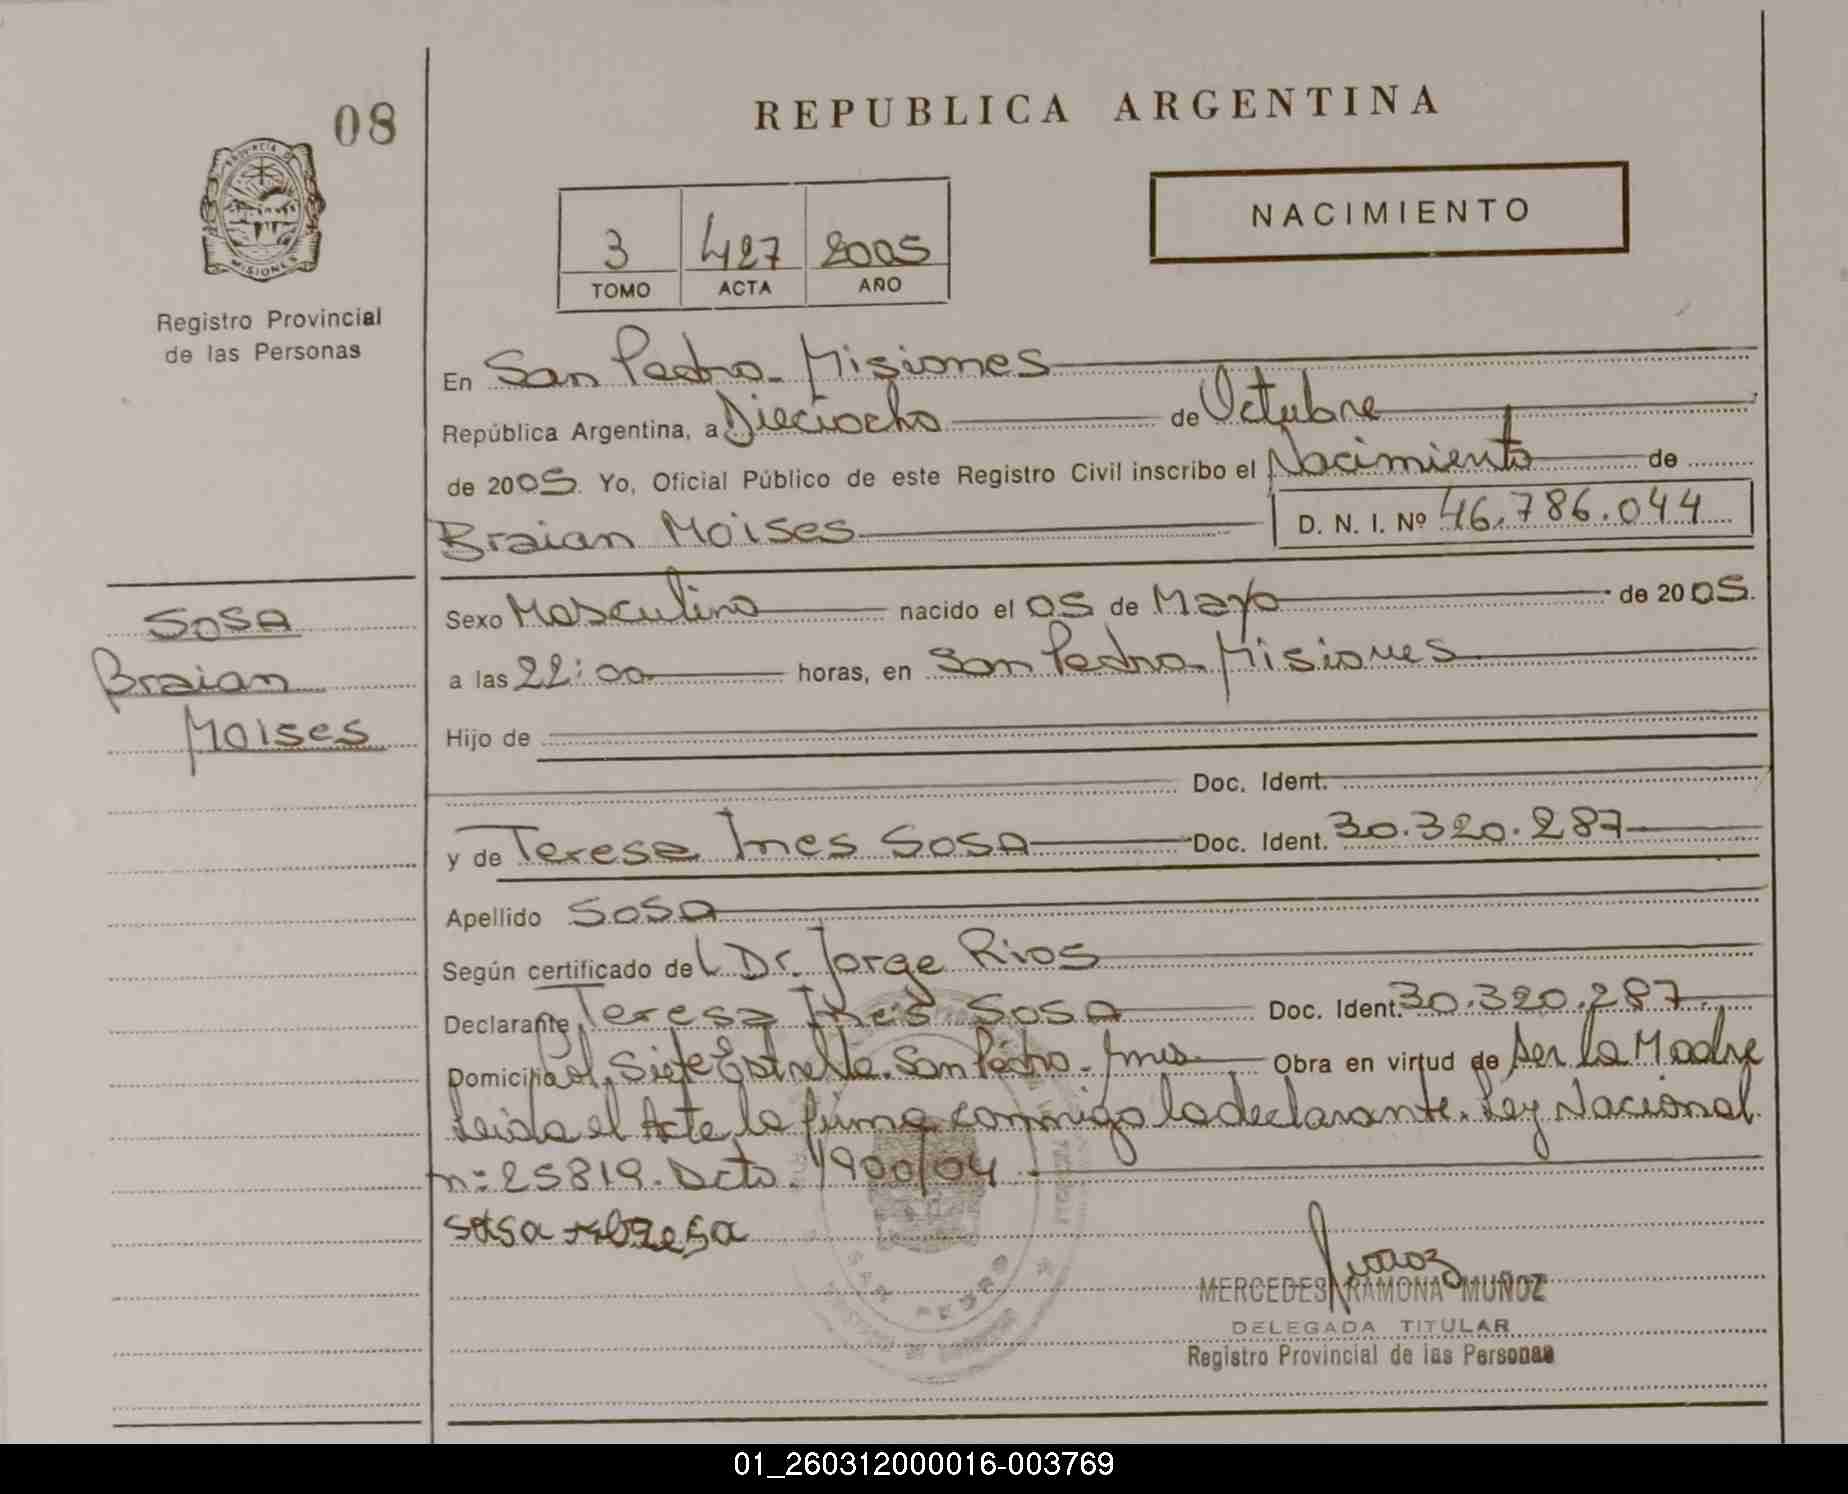 08
REPUBLICA ARGENTINA
PROVINCIA DE
MISIONES
Registro Provincial
de las Personas
3 427 2005
TOMO ACTA AÑO
NACIMIENTO
En San Pedro - Misiones
República Argentina, a Dieciocho de Octubre
de 2005. Yo, Oficial Público de este Registro Civil inscribo el Nacimiento de
Braian Moises D. N. I. Nº 46.786.044
Sosa
Braian
Moises
Sexo Masculino nacido el 05 de Mayo de 2005.
a las 22:00 horas, en San Pedro - Misiones
Hijo de
Doc. Ident.
y de Teresa Ines Sosa Doc. Ident. 30.320.287
Apellido Sosa
Según certificado del Dr. Jorge Rios
Declarante Teresa Ines Sosa Doc. Ident. 30.320.287
Domicilio Siete Estrella. San Pedro - Mnes. Obra en virtud de ser la Madre
Leida el Acta la firma conmigo la declarante. Ley Nacional
n: 25819. Dcto. 1900/04
Sosa
SAN PEDRO
MERCEDES RAMONA MUÑOZ
DELEGADA TITULAR
Registro Provincial de las Personas
01_260312000016-003769